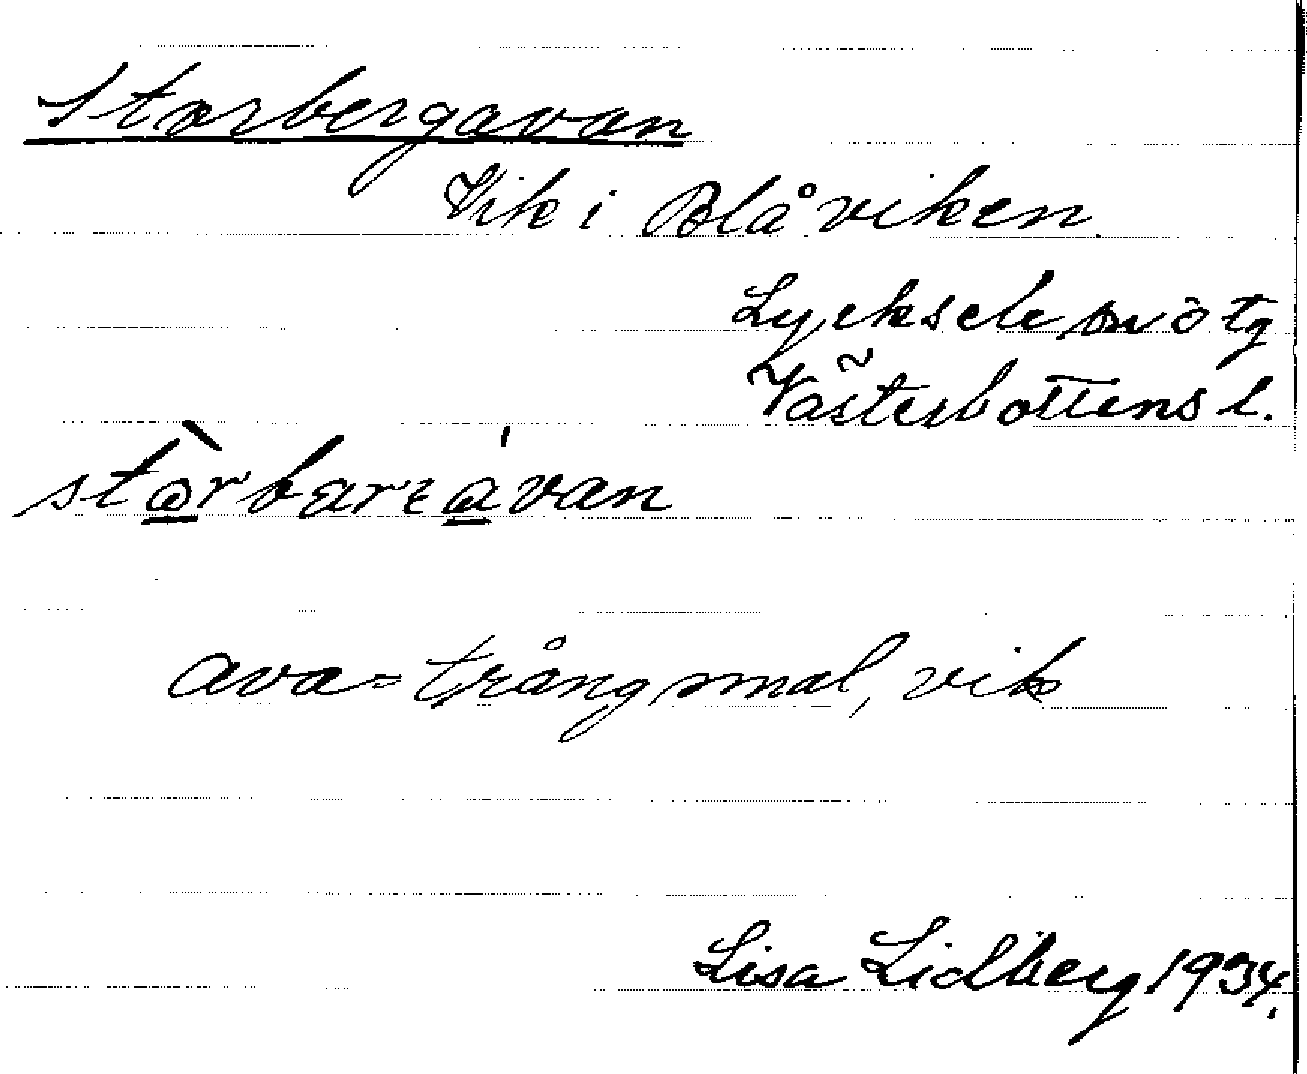 Storbergavan
Vik i Blåviken.
Lycksele
Västerbottens l.
stòrbarɛávan
ava = trång smal, vik
Lisa Lidberg 1934.